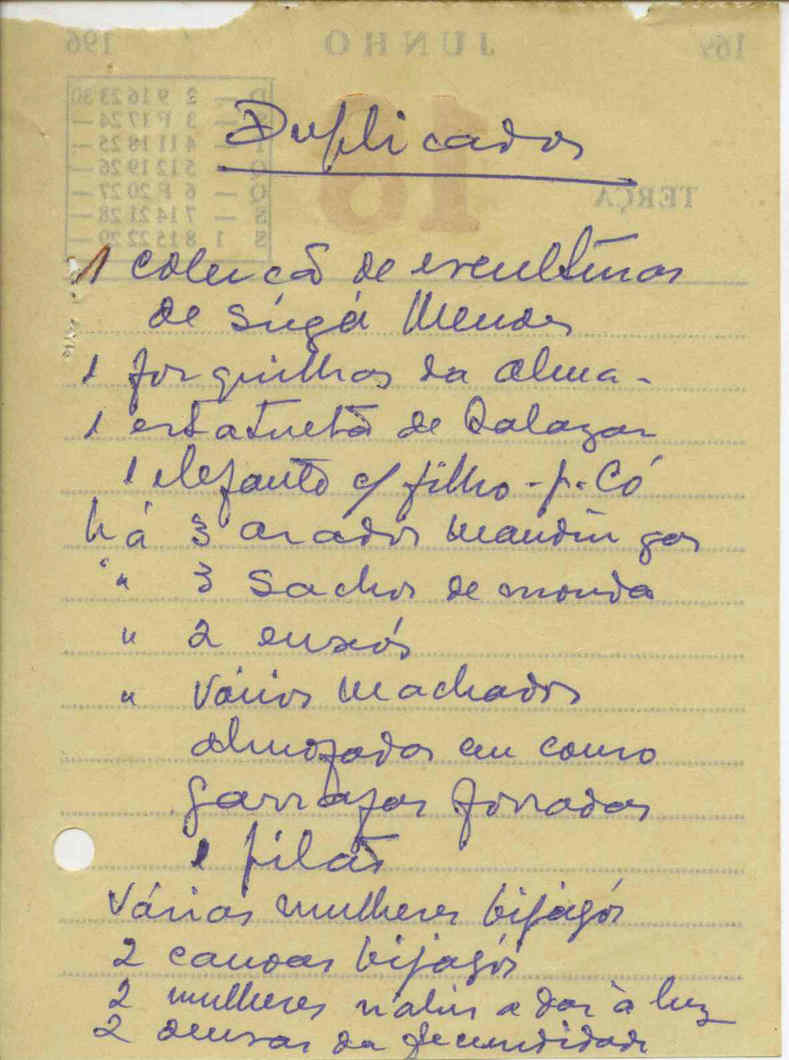 Duplicados
1 colecção de esculturas
de Sirgá Mendes
1 forquilhas da alma -
1 estatueta de Salazar
1 elefante c/ filho - p. Có
há 3 arados mandingas
" 3 Sachos de monda
" 2 enxós
" Vários machados
almofadas em couro
garrafas forradas
1 pilão
Várias mulheres bijagós
2 canoas bijagós
2 mulheres nalus a dar à luz
2 deusas da fecundidade
169 JUNHO 196
18
TERÇA
D — 2 9 16 23 30
S — 3 F 17 24 —
T — 4 11 18 25 —
Q — 5 12 19 26 —
Q — 6 F 20 27 —
S — 7 14 21 28 —
S 1 8 15 22 29 —